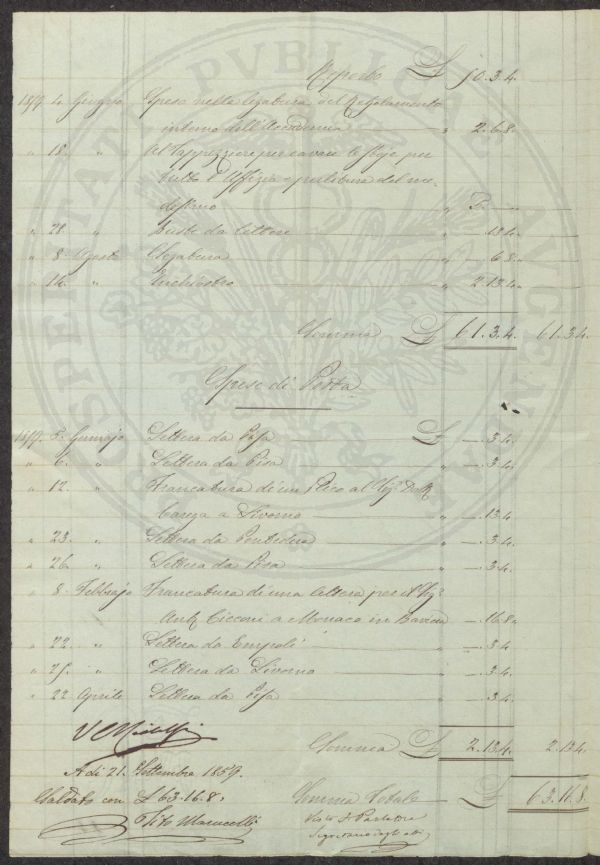 Riporto £ 50.3.4.
1859. 4. Giugno Spese nella legatura del Regolamento
interno dell'Accademia " 2.6.8.
" 18. " Al Tappezziere per cavare le stoje per
tutto l'Uffizio e pulitura del me-
desimo " 5.—.—
" 28. " Buste da lettere " —.13.4.
" 8. Agosto Legatura " —.6.8.
" 16. " Inchiostro " 2.13.4.
Somma £ 61.3.4. 61.3.4.
Spese di Posta
1859. 5. Gennajo Lettera da Pisa £ —.3.4.
" 6. " Lettera da Pisa " —.3.4.
" 12. " Francatura di un Plico al Sig. Dott.
a Livorno " —.13.4
" 23. " Lettera da Pontedera " —.3.4.
" 26. " Lettera da Pisa " —.3.4.
" 8. Febbrajo Francatura di una lettera per il Sig.
Ant. Cicconi a Monaco in Baviera —.16.8.
" 22. " Lettera da Empoli " —.3.4
" 25. " Lettera da Livorno " —.3.4.
" 22 Aprile Lettera da Pisa " —.3.4.
Somma £ 2.13.4. 2.13.4
A dì 21. Settembre 1859.
Saldato con £ 63.16.8. Somma Totale £ 63.16.8.
Tito Marucelli Visto F. Parlatore
Segretario degli Atti
PROSPERITATI PVBLICAE AVGENDAE